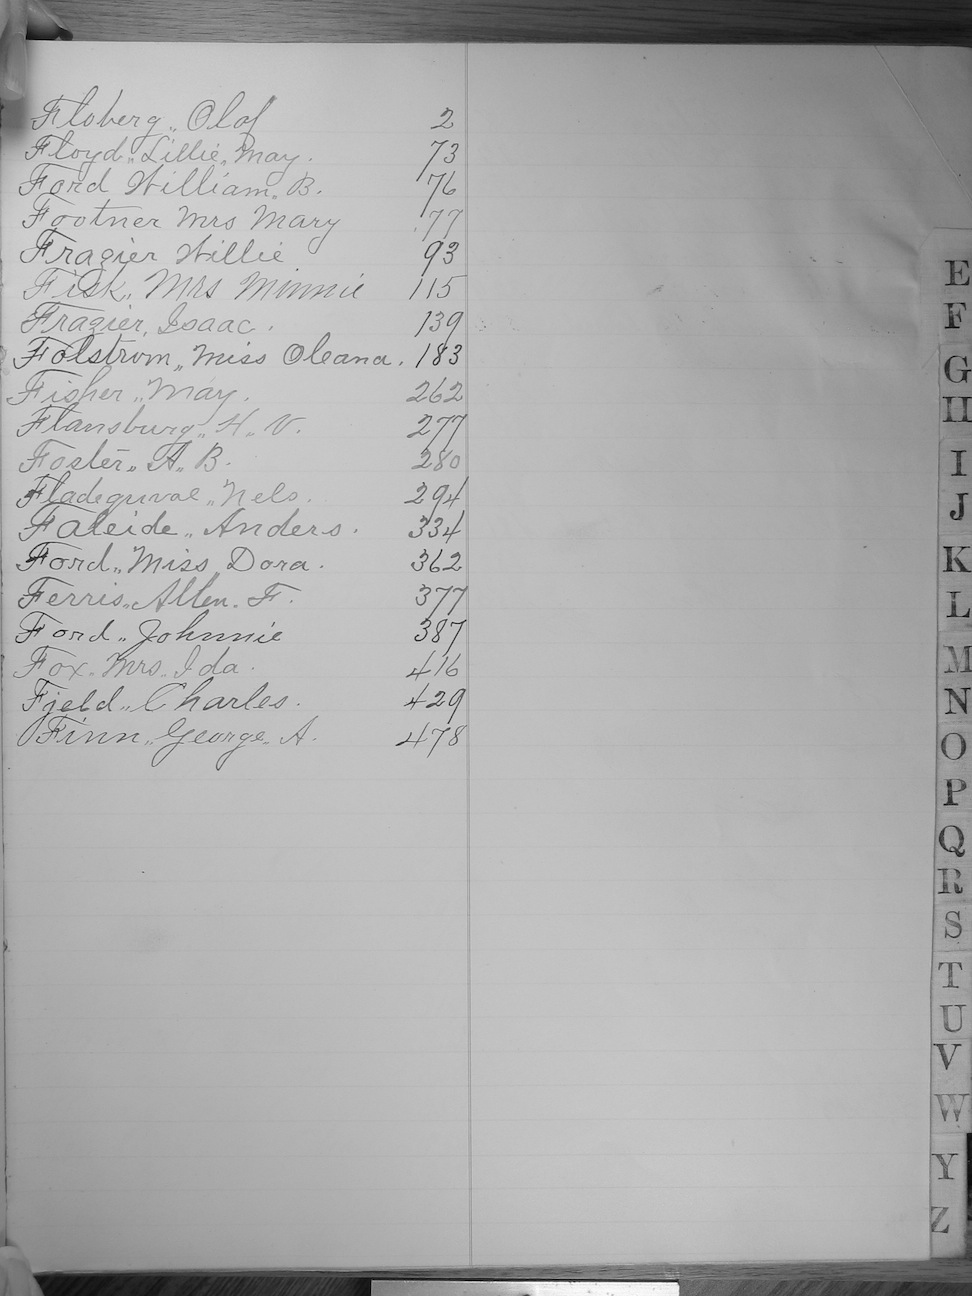 Floberg,, Olof 2
Floyd,, Lillie,, May. 73
Ford William,, B. 76
Footner Mrs Mary 77
Frazier Willie 93
Fisk,, Mrs Minnie 115
Frazier, Isaac. 139
Folstrom,, Miss Oleana. 183
Fisher,, May. 262
Flansburg,, H,, V. 277
Foster,, A,, B. 280
Nels. 294
Faleide,, Anders. 334
Ford,, Miss Dora. 362
Ferris,, Allen. F. 377
Ford,, Johnnie 387
Fox,, Mrs. Ida. 416
Fjeld,, Charles. 429
Finn,, George,, A. 478
E
F
G
H
I
J
K
L
M
N
O
P
Q
R
S
T
U
V
W
Y
Z